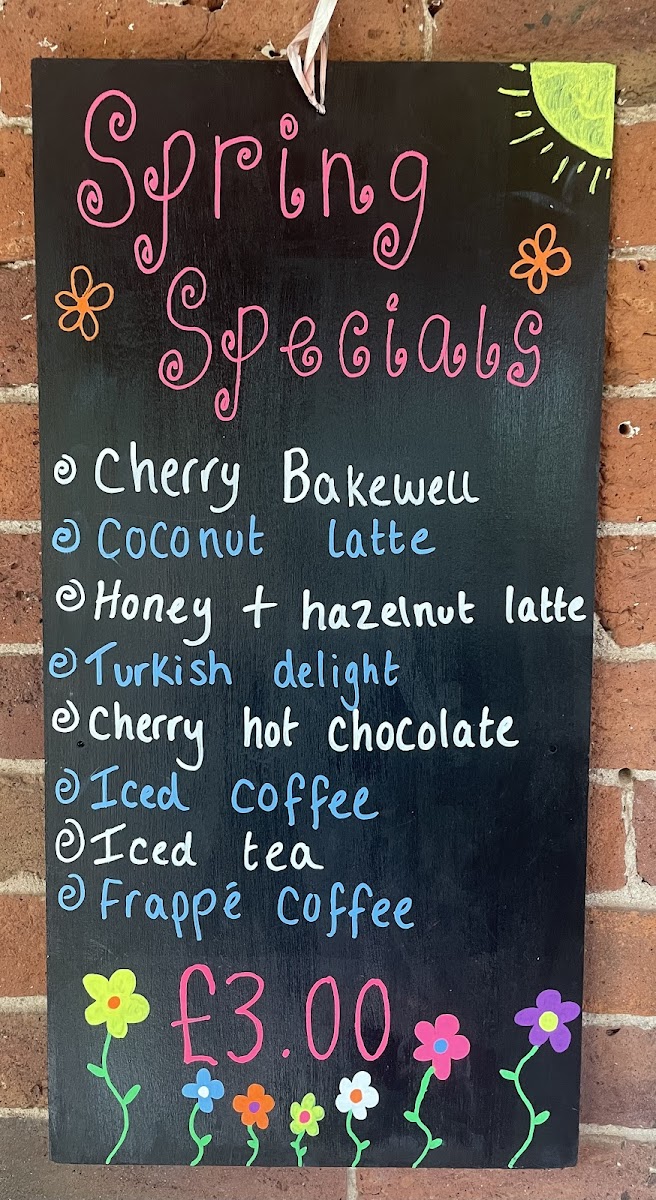 Spring
Specials
Cherry Bakewell
Coconut latte
Honey + hazelnut latte
Turkish delight
Cherry hot chocolate
Iced coffee
Iced tea
Frappé coffee
£3.00